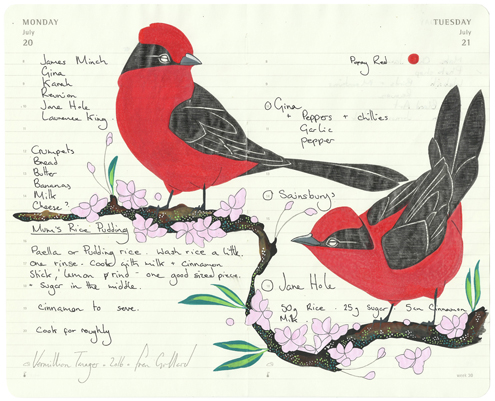 MONDAY
July
20
James Minch
Gina
Karah
Reunion
Jane Hole
Lawrence King
Crumpets
Bread
Butter
Bananas
Milk
Cheese?
Mum's Rice Pudding
Paella or Pudding rice. Wash rice a little.
one rinse. Cook with milk + cinnamon
stick, lemon rind - one good sized piece.
+ Sugar in the middle.
Cinnamon to serve.
Cook for roughly
Vermillion Tanager - 2016 - Fran Giffard
TUESDAY
July
21
Poppy Red
Gina
+ Peppers + chillies
Garlic
pepper
Sainsburys
Jane Hole
50g Rice. 25g Sugar 5cm Cinnamon
Milk